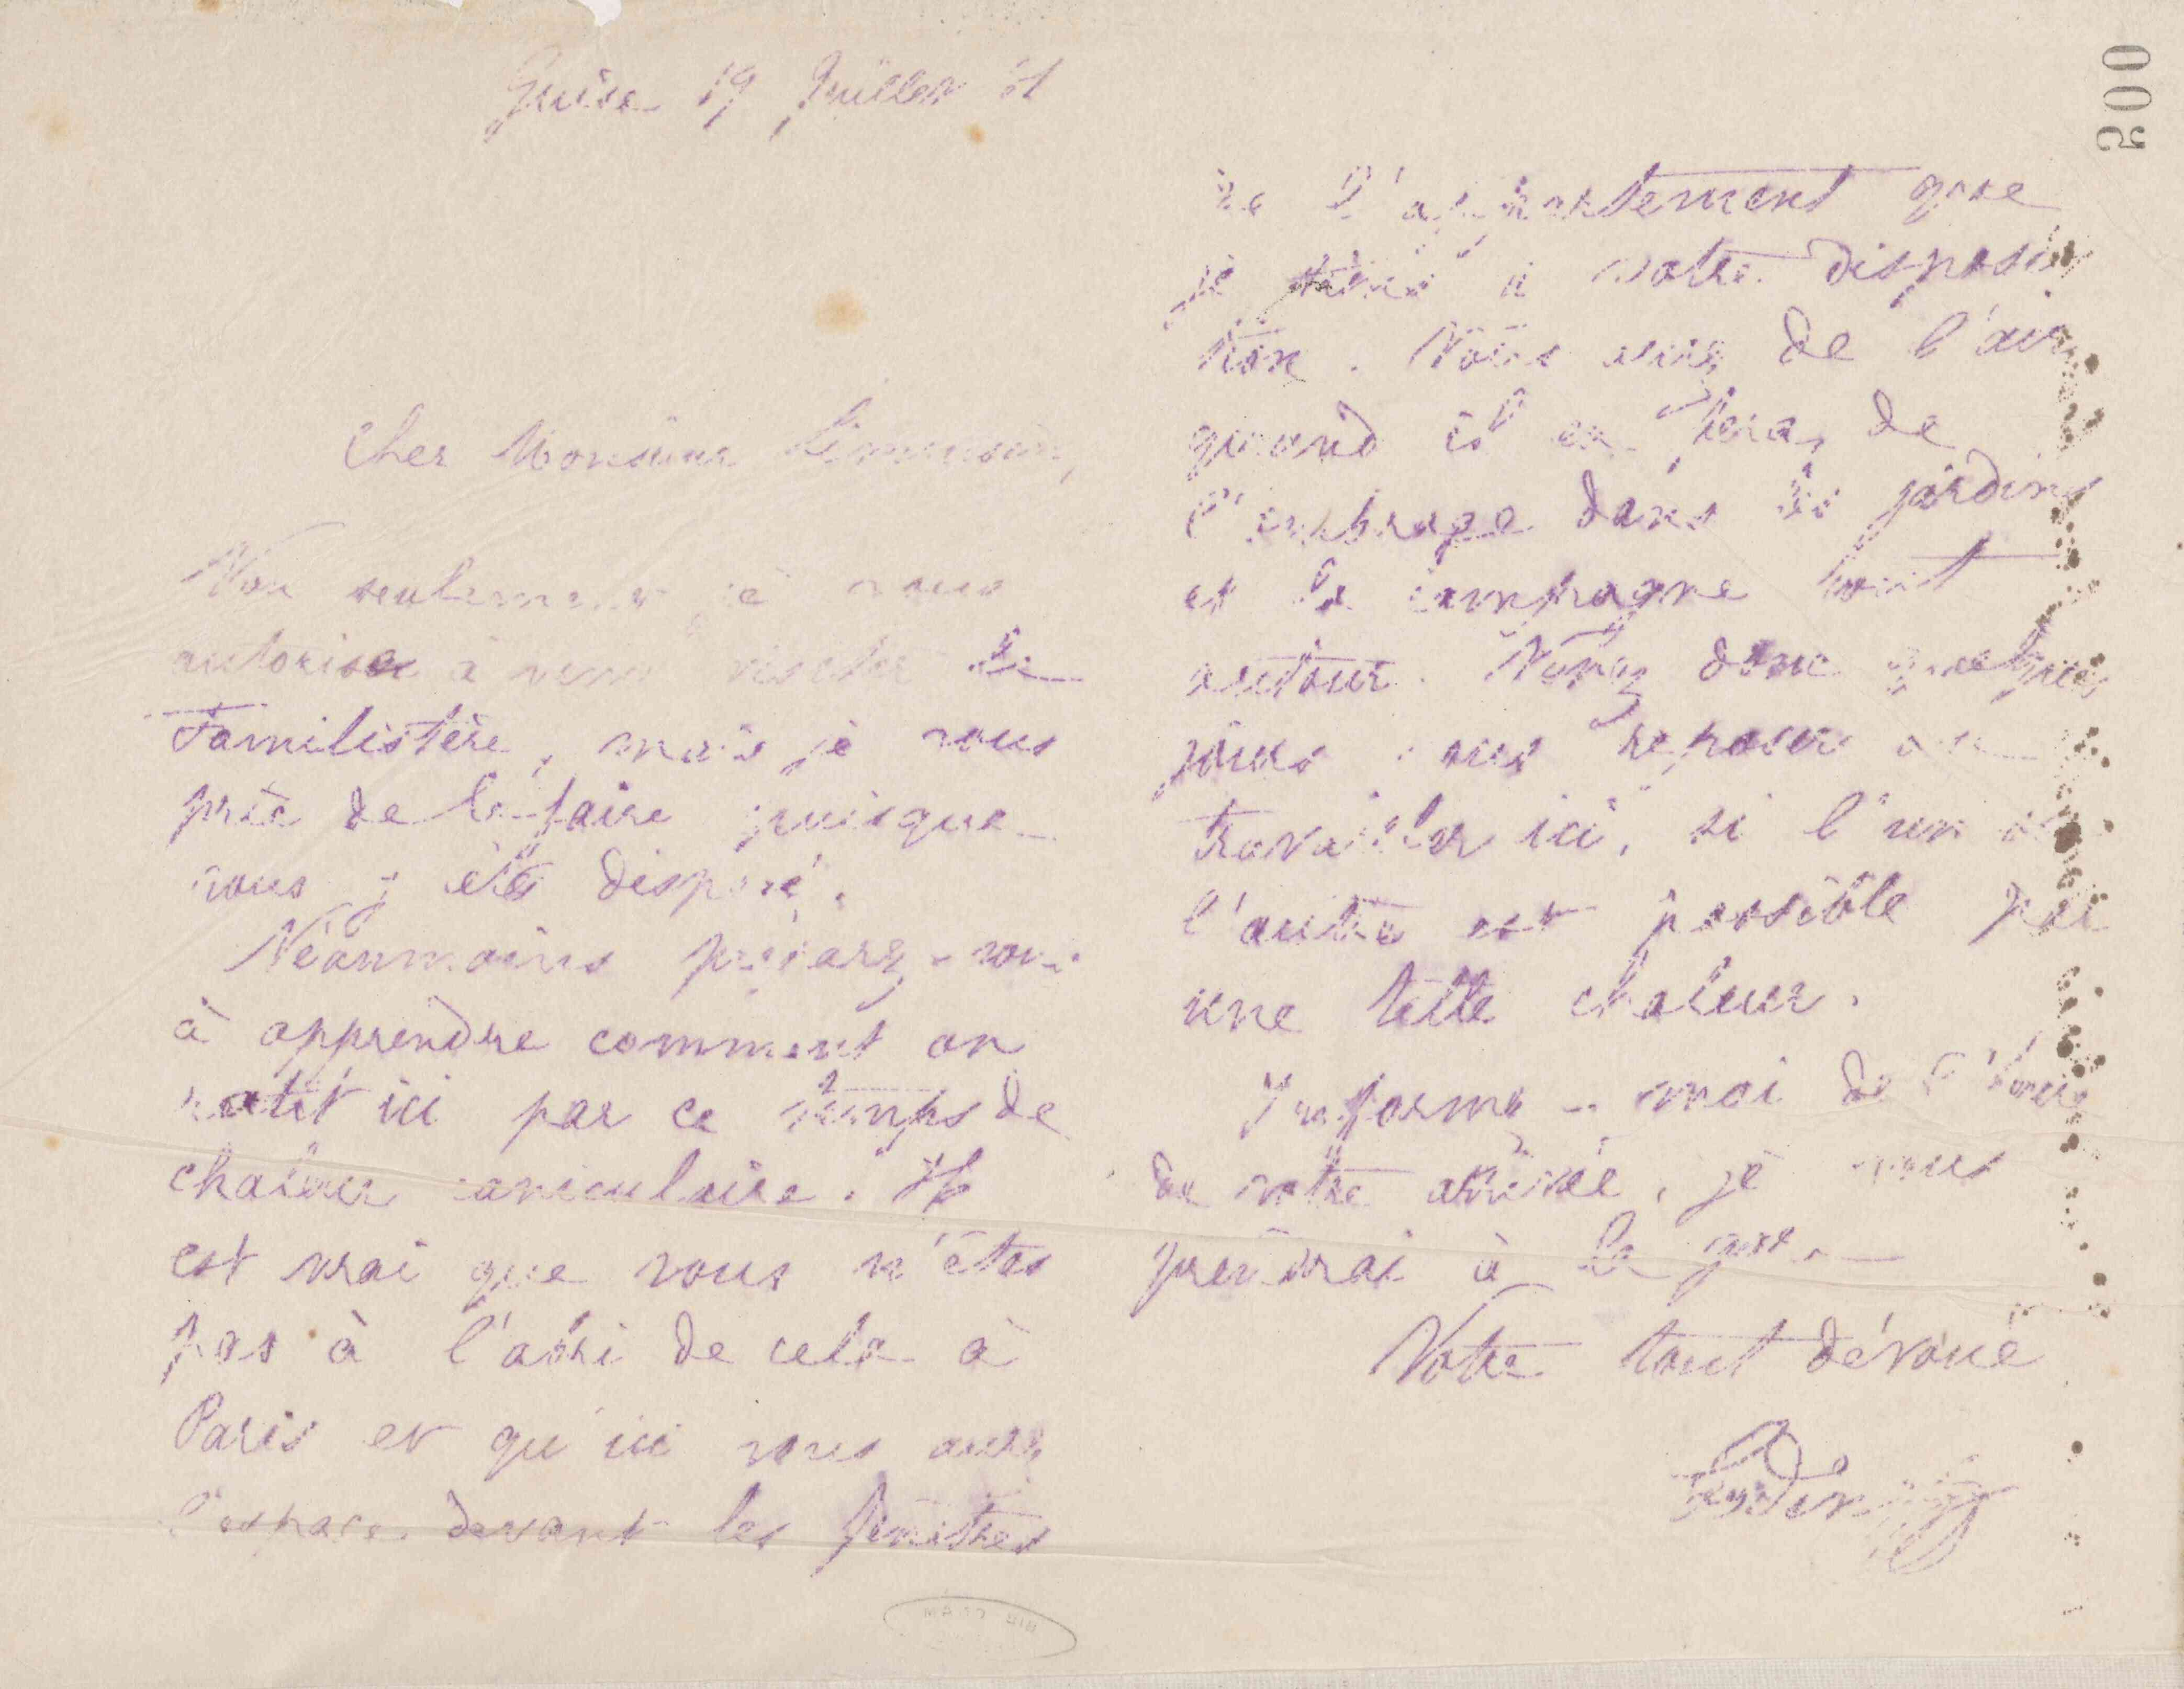 Guise 19 Juillet 81
Cher Monsieur Limousin,
Non seulement je vous
autorise à venir visiter le
Familistère, mais je vous
prie de le faire puisque
vous y êtes disposé.
Néanmoins préparez-vous
à apprendre comment on
rôtit ici par ce temps de
chaleur caniculaire. Il
est vrai que vous n'êtes
pas à l'abri de cela à
Paris et qu'ici vous aurez
l'espace devant les fenêtres
de l'appartement que
je tiens à votre disposi
tion. Vous aurez de l'air
quand il en fera, de
l'ombrage dans les jardins
et la campagne tout
autour. Venez donc quelques
jours vous reposer ou
travailler ici, si l'un ou
l'autre est possible par
une telle chaleur.
Informez-moi de l'heure
de votre arrivée, je vous
prendrai à la gare.
Votre tout dévoué
Godin
500